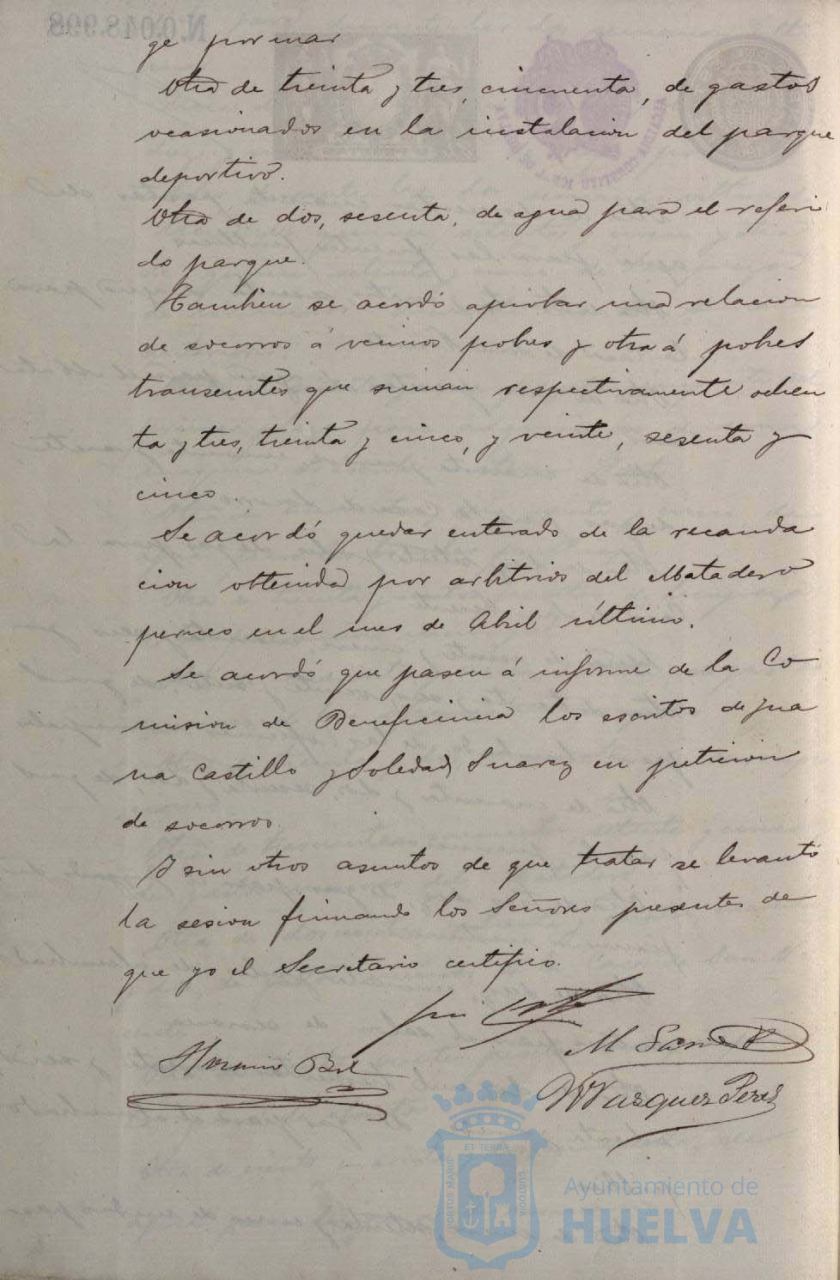 N.0.048.998
ge por mar
Otra de treinta y tres, cincuenta, de gastos
ocasionados en la instalacion del parque
deportivo.
Otra de dos, sesenta, de agua para el referi
do parque.
Tambien se acordó aprobar una relacion
de socorros á vecinos pobres y otra á pobres
transeuntes que suman respectivamente ochen
ta y tres, treinta y cinco, y veinte, sesenta y
cinco.
Se acordó quedar enterado de la recauda
cion obtenida por arbitrios del Matadero
permeo en el mes de Abril último.
Se acordó que pasen á informe de la Co
mision de Beneficencia los escritos de Jua
na Castillo y Soledad Suarez en peticion
de socorros.
Y sin otros asuntos de que tratar se levantó
la sesion firmando los Señores presentes de
que yo el Secretario certifico.
M
Vazquez Perez
PORTUS MARIS ET TERRAE CUSTODIA
Ayuntamiento de
HUELVA